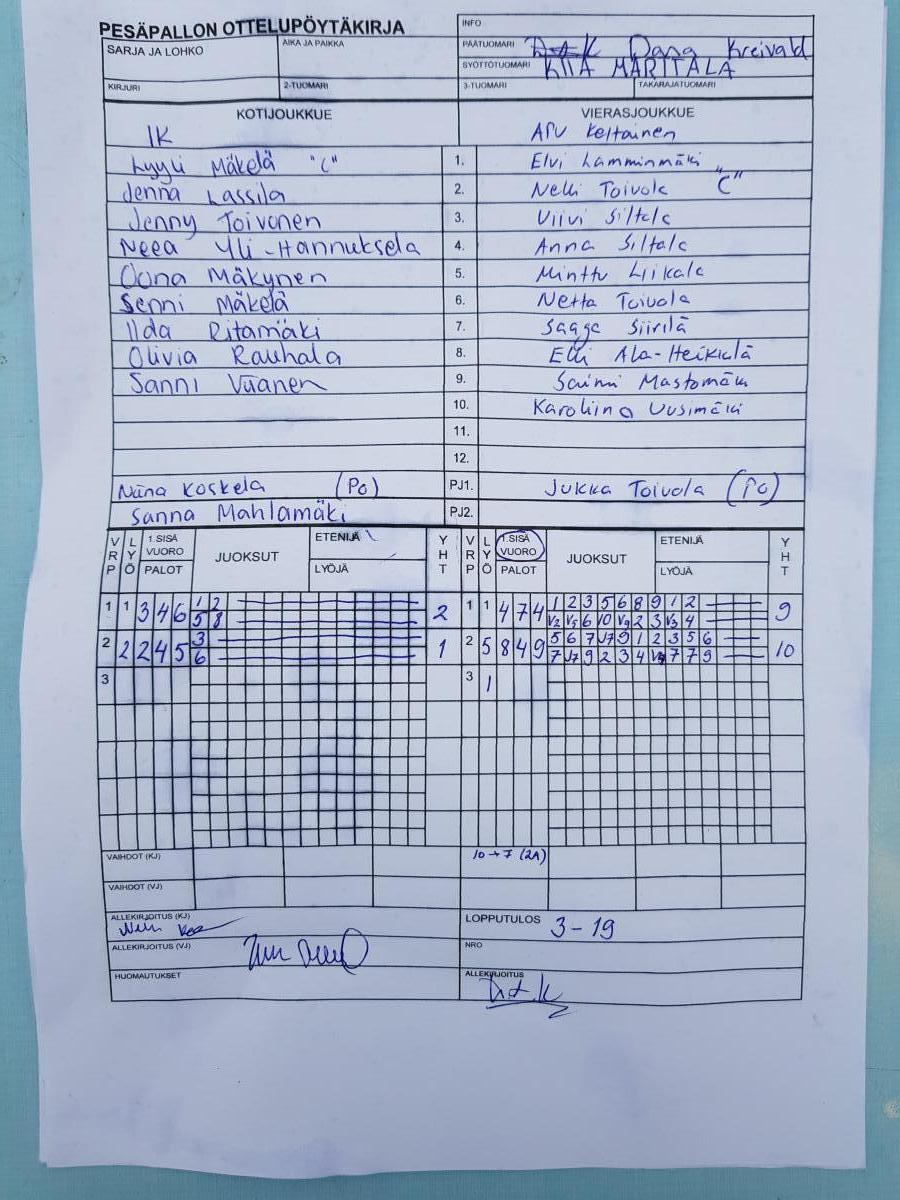 PESÄPALLON OTTELUPÖYTÄKIRJA
INFO
SARJA JA LOHKO
AIKA JA PAIKKA
PÄÄTUOMARI Dana Kreivald
SYÖTTÖTUOMARI KIIA MARITALA
KIRJURI
2-TUOMARI
3-TUOMARI
TAKARAJATUOMARI
KOTIJOUKKUE
VIERASJOUKKUE
IK
APV Keltainen
Lyyli Mäkelä "C" 1. Elvi Lamminmäki
Jenna Lassila 2. Nelli Toivola "C"
Jenny Toivonen 3. Viivi Siltala
Neea Yli-Hannuksela 4. Anna Siltala
Oona Mäkynen 5. Minttu Liikala
Senni Mäkelä 6. Netta Toivola
Iida Ritamäki 7. Saaga Siirilä
Olivia Rauhala 8. Elli Ala-Heikkilä
Sanni Väänen 9. Saimi Mastomäki
10. Karoliina Uusimäki
11.
12.
Niina Koskela (PO) PJ1. Jukka Toivola (PO)
Sanna Mahlamäki PJ2.
VRP LYÖ 1.SISÄ VUORO PALOT JUOKSUT ETENIJÄ LYÖJÄ YHT
VRP LYÖ 1.SISÄ VUORO PALOT JUOKSUT ETENIJÄ LYÖJÄ YHT
1 1 3 4 6 1 2 2
5 8
1 1 4 7 4 1 2 3 5 6 8 9 1 2 9
V2 V5 6 10 V9 2 3 V3 4
2 2 2 4 5 3 1
6
2 5 8 4 9 5 6 7 J7 9 1 2 3 5 6 10
7 J7 9 2 3 4 7 7 9
3
3 1
VAIHDOT (KJ)
10→7 (2A)
VAIHDOT (VJ)
ALLEKIRJOITUS (KJ)
LOPPUTULOS 3-19
ALLEKIRJOITUS (VJ)
NRO
HUOMAUTUKSET
ALLEKIRJOITUS